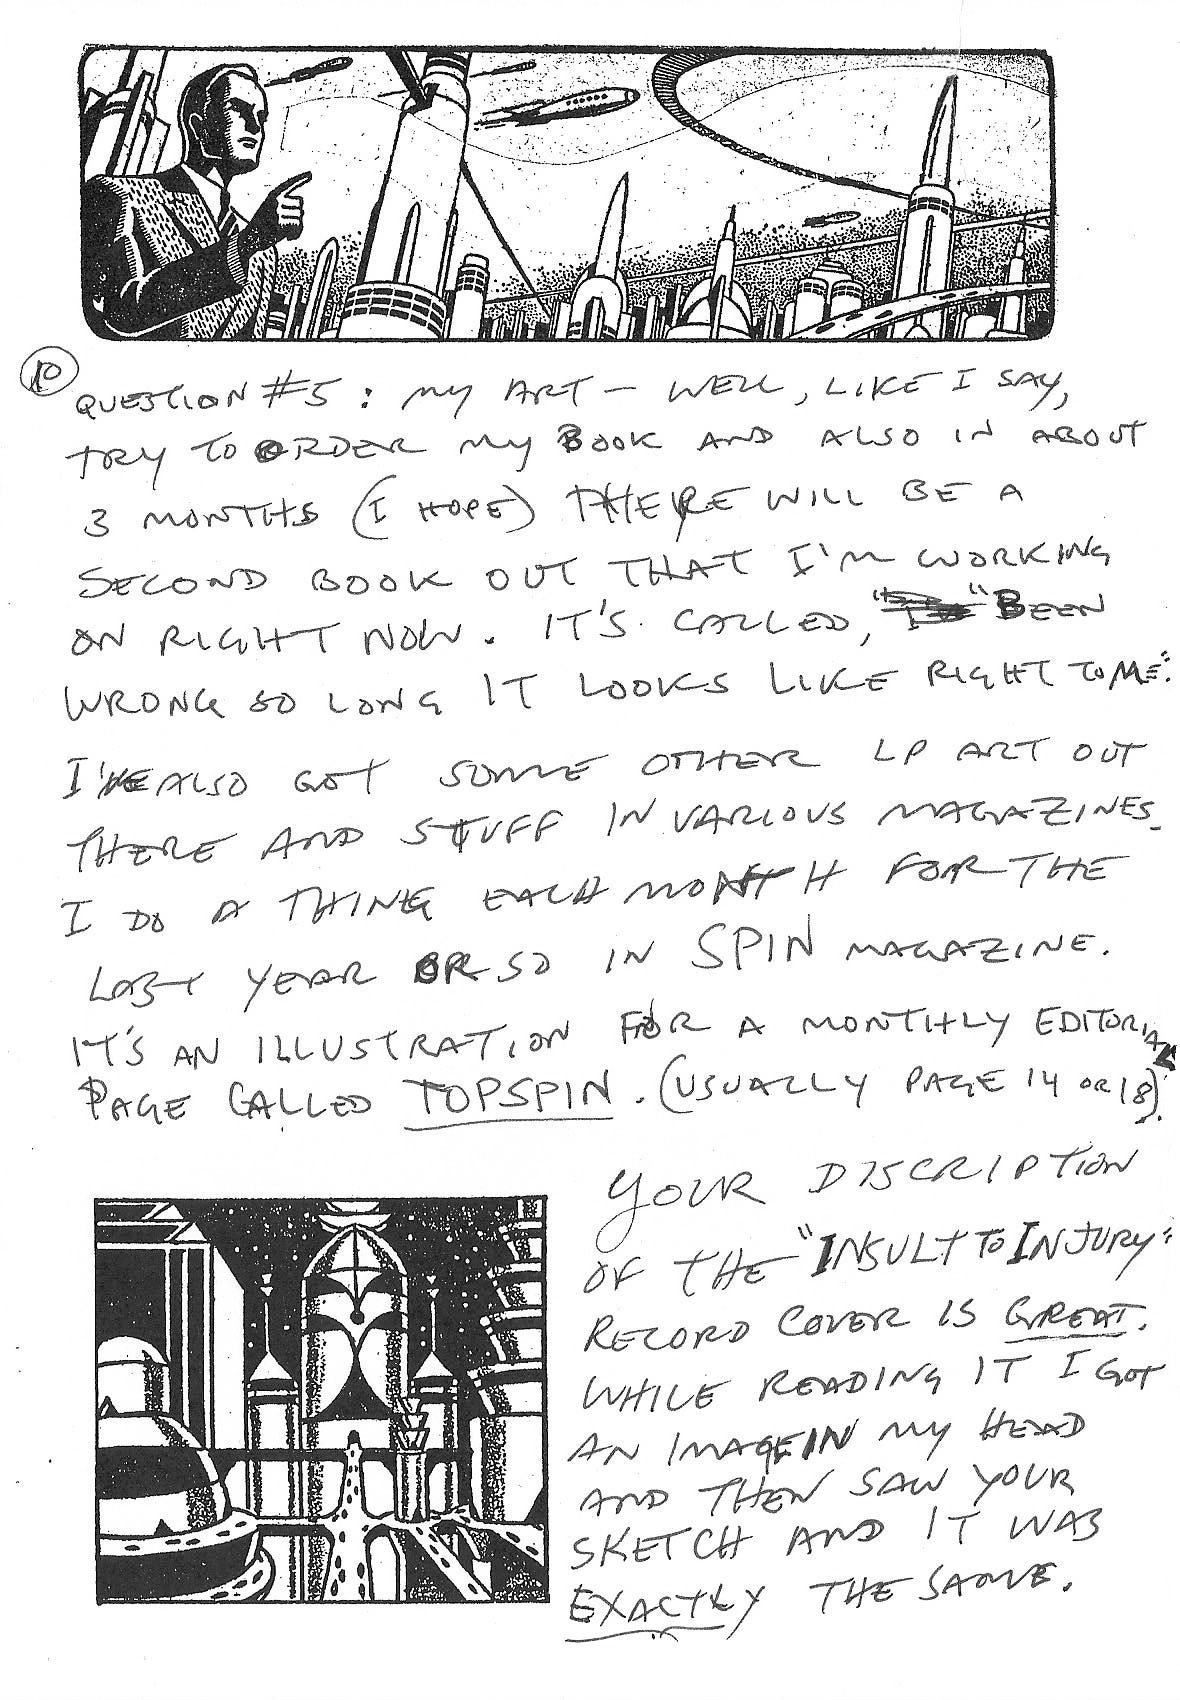 10
QUESTION #5: MY ART - WELL, LIKE I SAY,
TRY TO ORDER MY BOOK AND ALSO IN ABOUT
3 MONTHS (I HOPE) THERE WILL BE A
SECOND BOOK OUT THAT I'M WORKING
ON RIGHT NOW. IT'S CALLED, " " BEEN
WRONG SO LONG IT LOOKS LIKE RIGHT TO ME".
I'VE ALSO GOT SOME OTHER LP ART OUT
THERE AND STUFF IN VARIOUS MAGAZINES.
I DO A THING EACH MONTH FOR THE
LAST YEAR OR SO IN SPIN MAGAZINE.
IT'S AN ILLUSTRATION FOR A MONTHLY EDITORIAL
PAGE CALLED TOPSPIN. (USUALLY PAGE 14 OR 18).
YOUR DISCRIPTION
OF THE "INSULT TO INJURY"
RECORD COVER IS GREAT.
WHILE READING IT I GOT
AN IMAGE IN MY HEAD
AND THEN SAW YOUR
SKETCH AND IT WAS
EXACTLY THE SAME.